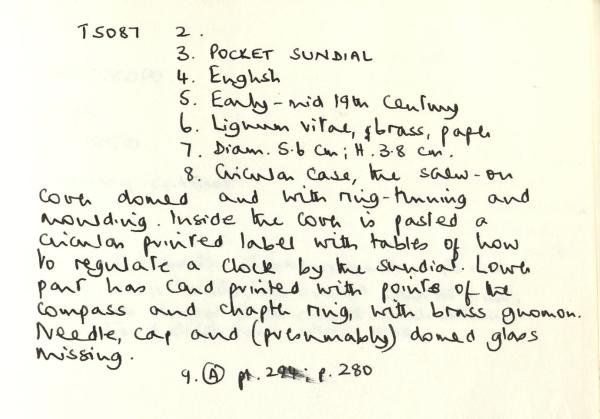 T5087 2.
3. POCKET SUNDIAL
4. English
5. Early-mid 19th Century
6. Lignum vitae, brass, paper
7. Diam. 5.6 cm; H. 3.8 cm.
8. Circular case, the screw-on
cover domed and with ring-turning and
moulding. Inside the cover is pasted a
circular printed label with tables of how
to regulate a clock by the sundial. Lower
part has card printed with points of the
compass and chapter ring, with brass gnomon.
Needle, cap and (presumably) domed glass
missing.
9. A pl. p. 280